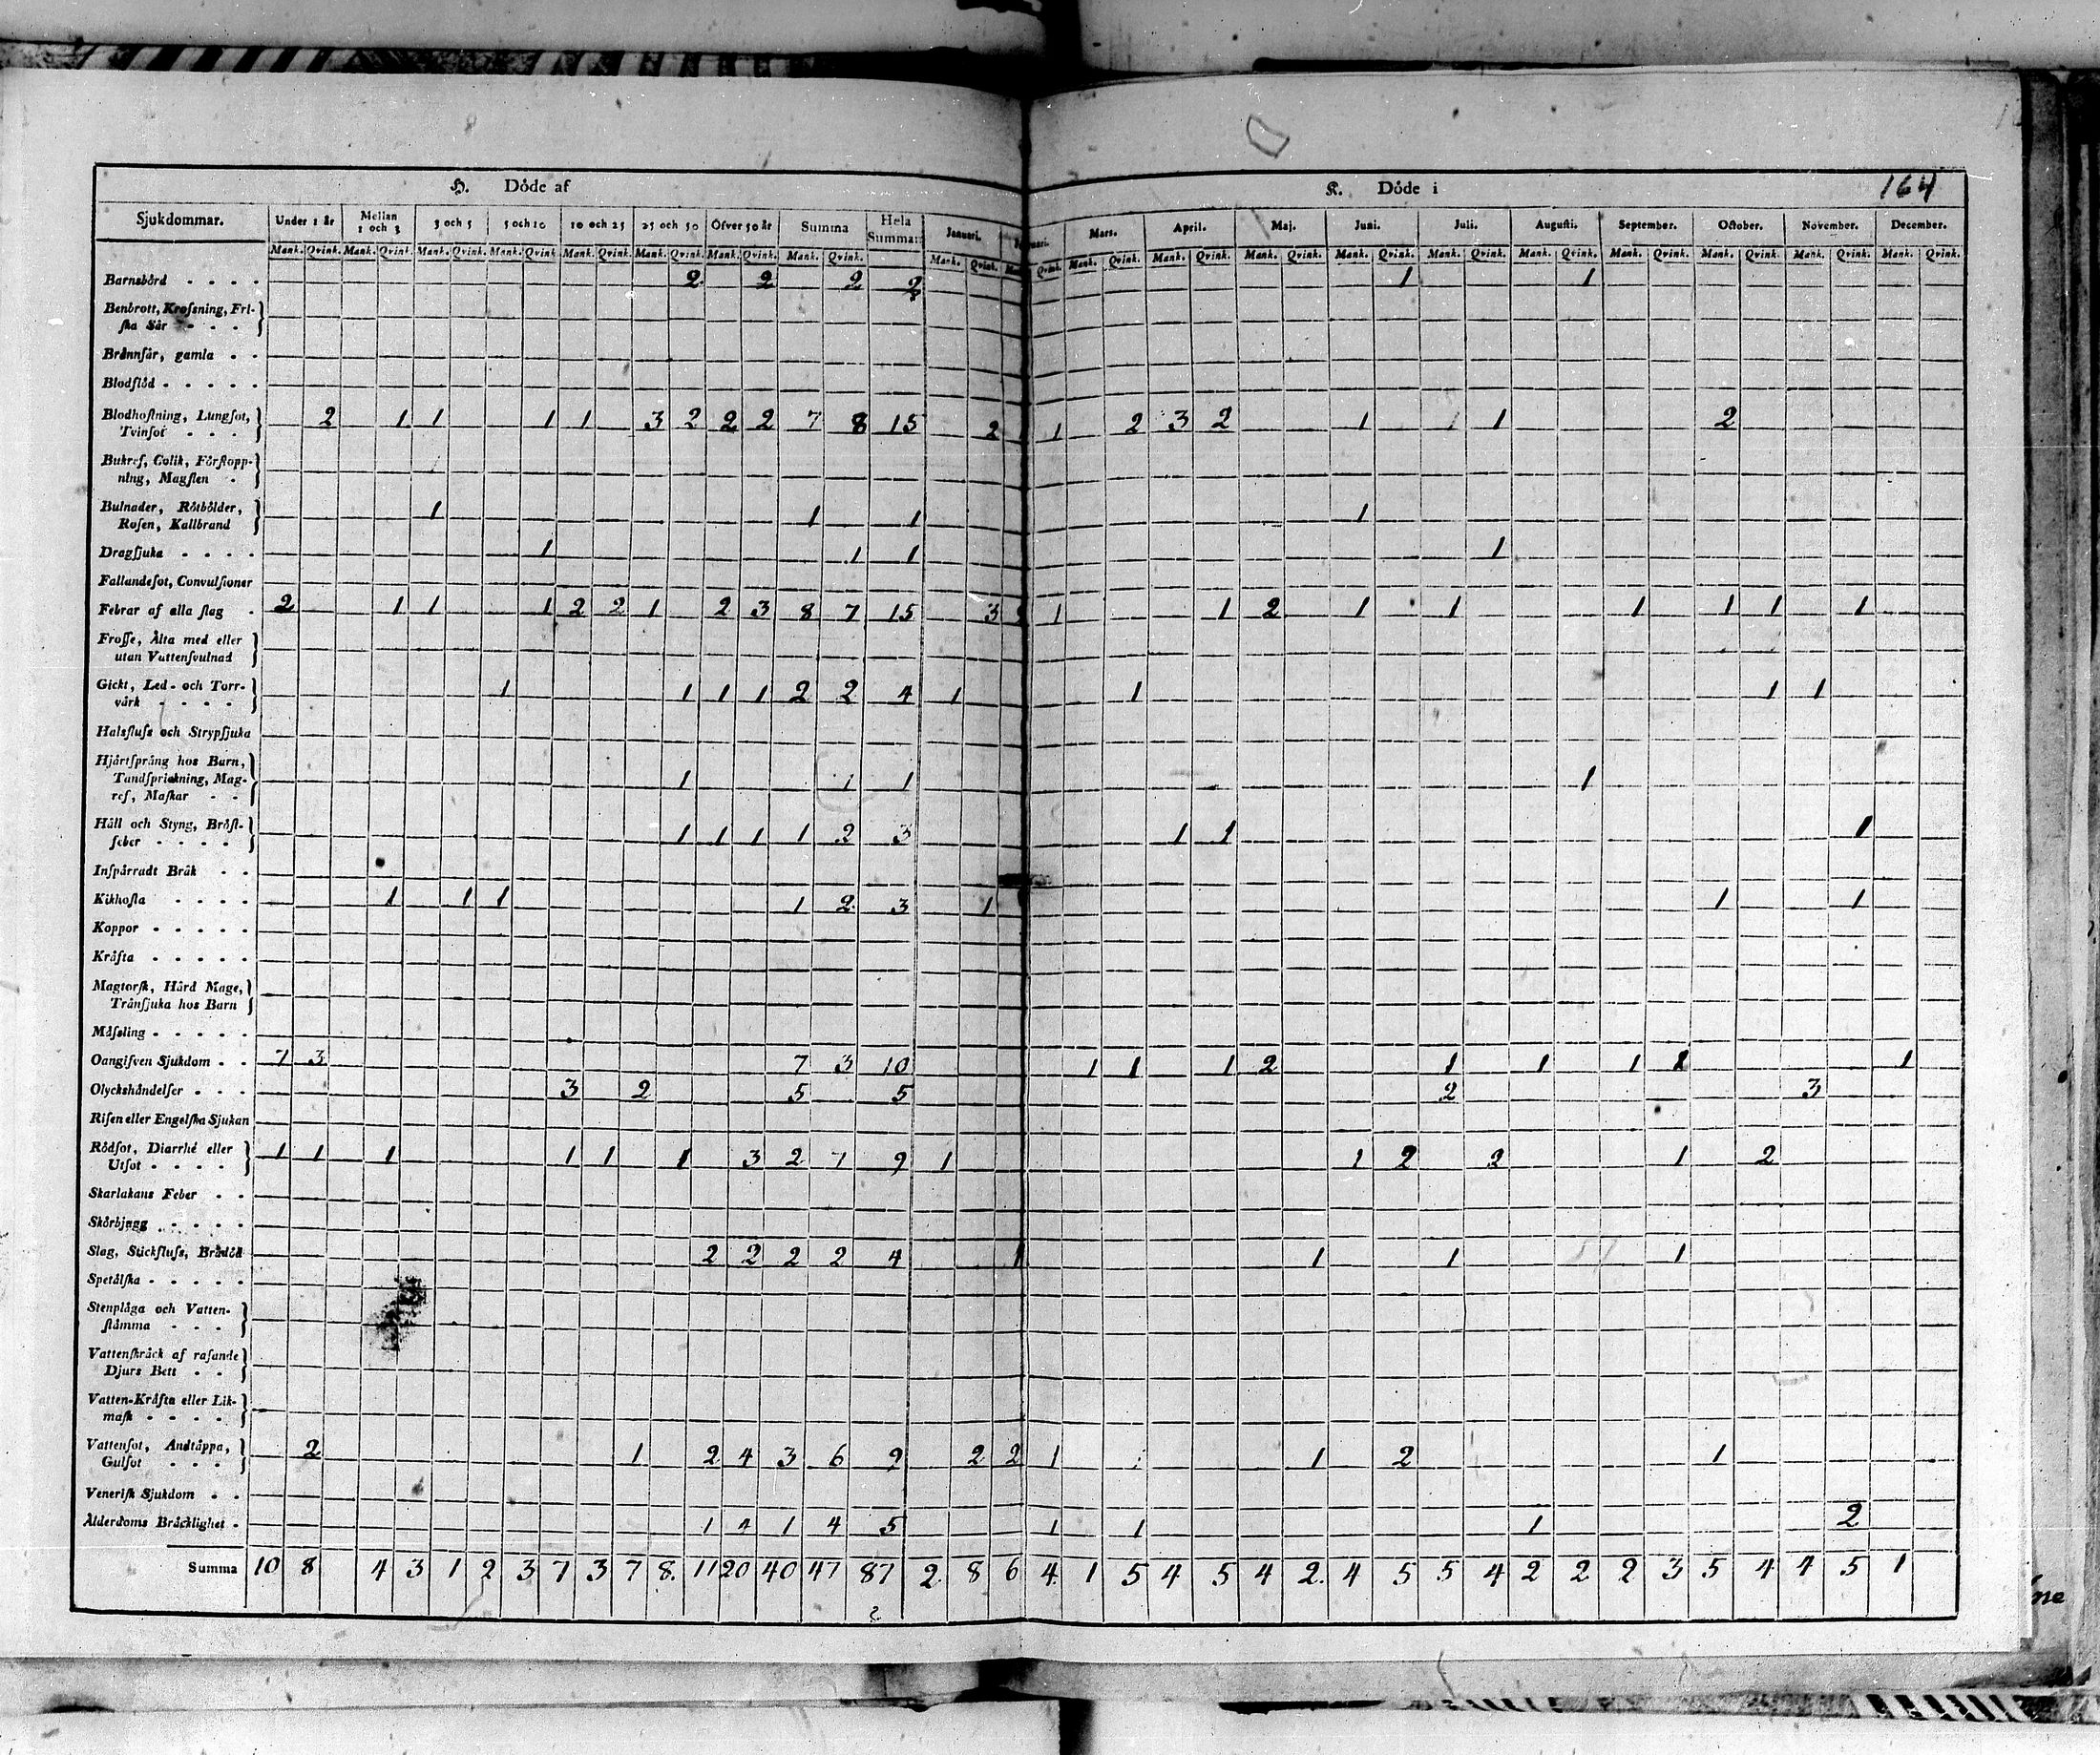 H. Döde af K. Döde i 164
Sjukdommar. Under 1 år Mellan 1 och 3 3 och 5 5 och 10 10 och 25 25 och 50 Öfver 50 år Summa Hela Summan Januari. Mars. April. Maj. Juni. Juli. Augusti. September. October. November. December.
Mank. Qvink. Mank. Qvink. Mank. Qvink. Mank. Qvink. Mank. Qvink. Mank. Qvink. Mank. Qvink. Mank. Qvink. Mank. Qvink. Qvink. Mank. Qvink. Mank. Qvink. Mank. Qvink. Mank. Qvink. Mank. Qvink. Mank. Qvink. Mank. Qvink. Mank. Qvink. Mank. Qvink. Mank. Qvink.
Barnsbörd 2 2 2 2 1 1
Benbrott, Krossning, Fri-
ska Sår
Brännsår, gamla
Blodflöd
Blodhostning, Lungsot,
Tvinsot 2 1 1 1 1 3 2 2 2 7 8 15 2 1 2 3 2 1 1 2
Bukref, Colik, Förstopp-
ning, Magsten
Bulnader, Rötbölder,
Rosen, Kallbrand 1 1 1 1
Dragsjuka 1 1 1 1
Fallandesot, Convulsioner
Febrar af alla slag 2 1 1 1 2 2 1 2 3 8 7 15 3 1 1 2 1 1 1 1 1 1
Frosse, Älta med eller
utan Vattensvulnad
Gickt, Led- och Torr-
värk 1 1 1 1 2 2 4 1 1 1 1
Halsfluss och Strypsjuka
Hjärtsprång hos Barn,
Tandsprickning, Mag-
ref, Maskar 1 1 1 1
Håll och Styng, Bröst-
feber 1 1 1 1 2 3 1 1 1
Inspärradt Bråk
Kikhosta 1 1 1 1 2 3 1 1 1
Koppor
Kräfta
Magtorsk, Hård Mage,
Trånsjuka hos Barn
Mässling
Oangifven Sjukdom 7 3 7 3 10 1 1 1 2 1 1 1 1 1
Olyckshändelser 3 2 5 5 2 3
Risen eller Engelska Sjukan
Rödsot, Diarrhé eller
Utsot 1 1 1 1 1 1 3 2 7 9 1 1 2 2 1 2
Skarlakans Feber
Skörbjugg
Slag, Stickfluss, Brådöd 2 2 2 2 4 1 1 1 1
Spetälska
Stenplåga och Vatten-
stämma
Vattenskräck af rasande
Djurs Bett
Vatten-Kräfta eller Lik-
mask
Vattensot, Andtäppa,
Gulsot 2 1 2 4 3 6 9 2 2 1 1 2 1
Venerisk Sjukdom
Ålderdoms Bräcklighet 1 4 1 4 5 1 1 1 2
Summa 10 8 4 3 1 2 3 7 3 7 8. 11 20 40 47 87 2 8 6 4 1 5 4 5 4 2. 4 5 5 4 2 2 2 3 5 4 4 5 1
ne